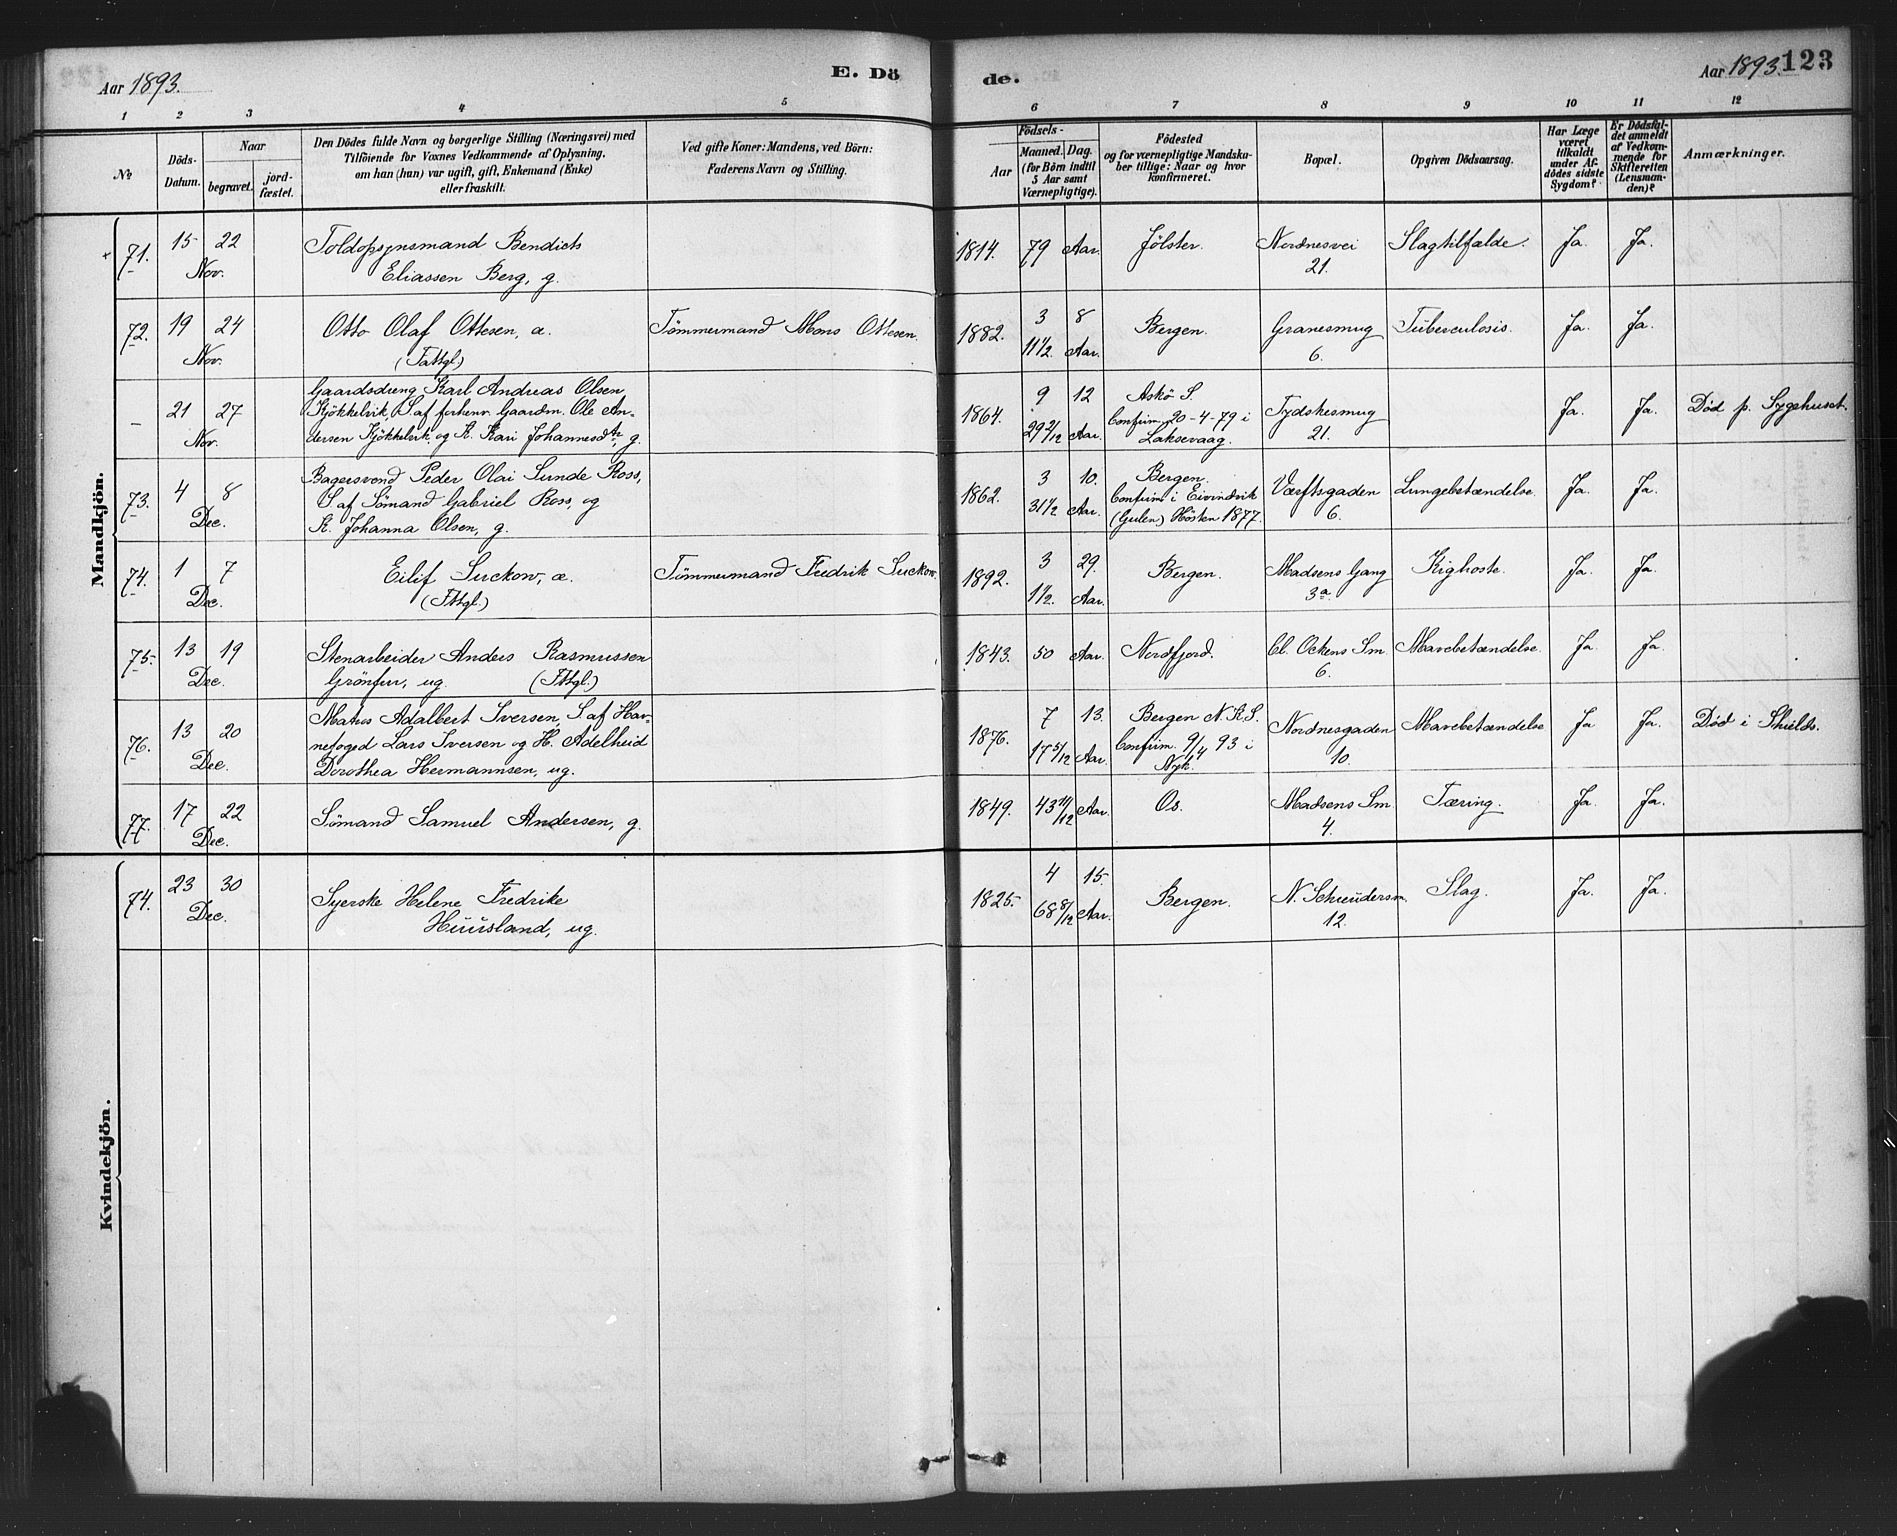 Aar 1893.
E. Dö
de.
Aar 1893.
123
1 2 3 4 5 6 7 8 9 10 11 12
No
Döds-
Datum.
Naar
begravet.
jord-
fæstet.
Den Dödes fulde Navn og borgerlige Stilling (Næringsvei) med
Tilföiende for Voxnes Vedkommende af Oplysning,
om han (hun) var ugift, gift, Enkemand (Enke)
eller fraskilt.
Ved gifte Koner: Mandens, ved Börn:
Faderens Navn og Stilling.
Födsels-
Aar
Maaned. Dag.
(for Börn indtil
5 Aar samt
Værnepligtige).
Födested
og for værnepligtige Mandska-
ber tillige: Naar og hvor
konfirmeret.
Bopæl.
Opgiven Dödsaarsag.
Har Læge
været
tilkaldt
under Af-
dödes sidste
Sygdom?
Er Dödsfal-
det anmeldt
af Vedkom-
mende for
Skifteretten
(Lensman-
den)?
Anmærkninger.
Mandkjön.
71. 15 22 Toldopsynsmand Bendicts 1814. 79 Aar. Jölster. Nordnesvei Slagtilfælde. Ja. Ja.
Nov. Eliassen Berg, g. 21.
72. 19 24 Otto Olaf Ottesen, æ. Tömmermand Mons Ottesen. 1882. 3 8 Bergen. Granesmug Tuberculosis. Ja. Ja.
Nov. (Fattgl.) 11 1/2 Aar. 6.
Gaardsdreng Karl Andreas Olsen
– 21 27 Kjökkelvik, S. af forhenv. Gaardm. Ole An- 1864. 9 12 Askö S. Tydskesmug Ja. Ja. Död p. Sygehuset.
Nov. dersen Kjökkelvik og K. Kari Johannesdtr, g. 29 2/12 Aar. Confirm. 20-4-79 i 21.
Laksevaag.
Bagersvend Peder Olai Sunde Ross,
73. 4 8 S. af Sömand Gabriel Ross, og 1862. 3 10. Bergen. Værftsgaden Lungebetændelse. Ja. Ja.
Dec. K. Johanna Olsen, g. 31 1/2 Aar. Confirm i Eivindvik 6.
(Gulen) Hösten 1877.
74. 1 7 Eilif Suckow, æ. Tömmermand Fredrik Suckow. 1892. 3 29. Bergen. Madsens Gang Kighoste. Ja. Ja.
Dec. (Fttgl.) 1 1/2. Aar. 3a.
75. 13 19 Stenarbeider Anders Rasmussen 1843. 50 Aar. Nordfjord. Cl. Ockens Sm. Mavebetændelse. Ja. Ja.
Dec. Grönfur, ug. (Fttgl.) 6.
Adalbert Iversen, S. af Hav-
76. 13 20 nefoged Lars Iversen og H. Adelheid 1876. 7 13. Bergen N. K. S. Nordnesgaden Mavebetændelse Ja Ja. Död i Shields.
Dec. Dorothea Hermannsen, ug. 17 5/12 Aar. Confirm. 9/4 93 i 10.
Nyk.
77. 17 22 Sömand Samuel Andersen, g. 1849. 43 11/12 Aar. Os. Madsens Sm. Tæring. Ja. Ja.
Dec. 4.
Kvindekjön.
74. 23 30 Syerske Helene Fredrike 1825. 4 15. Bergen. N. Schreudersm. Slag. Ja. Ja.
Dec. Huusland, ug. 68 8/12 Aar. 12.